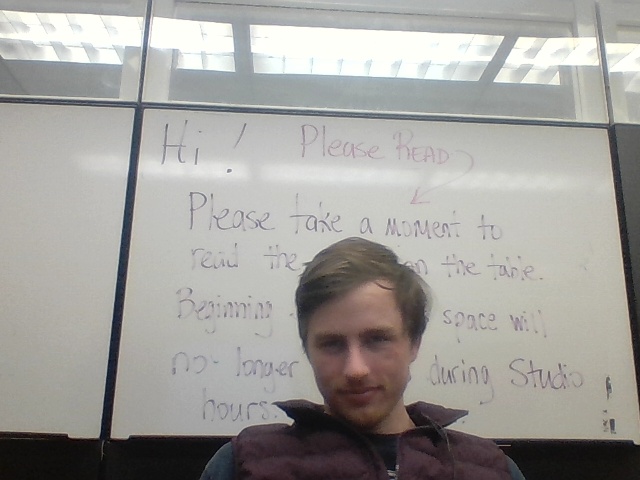 Hi! Please READ
Please take a moment to
read the on the table.
Beginning space will
no longer during Studio
hours.